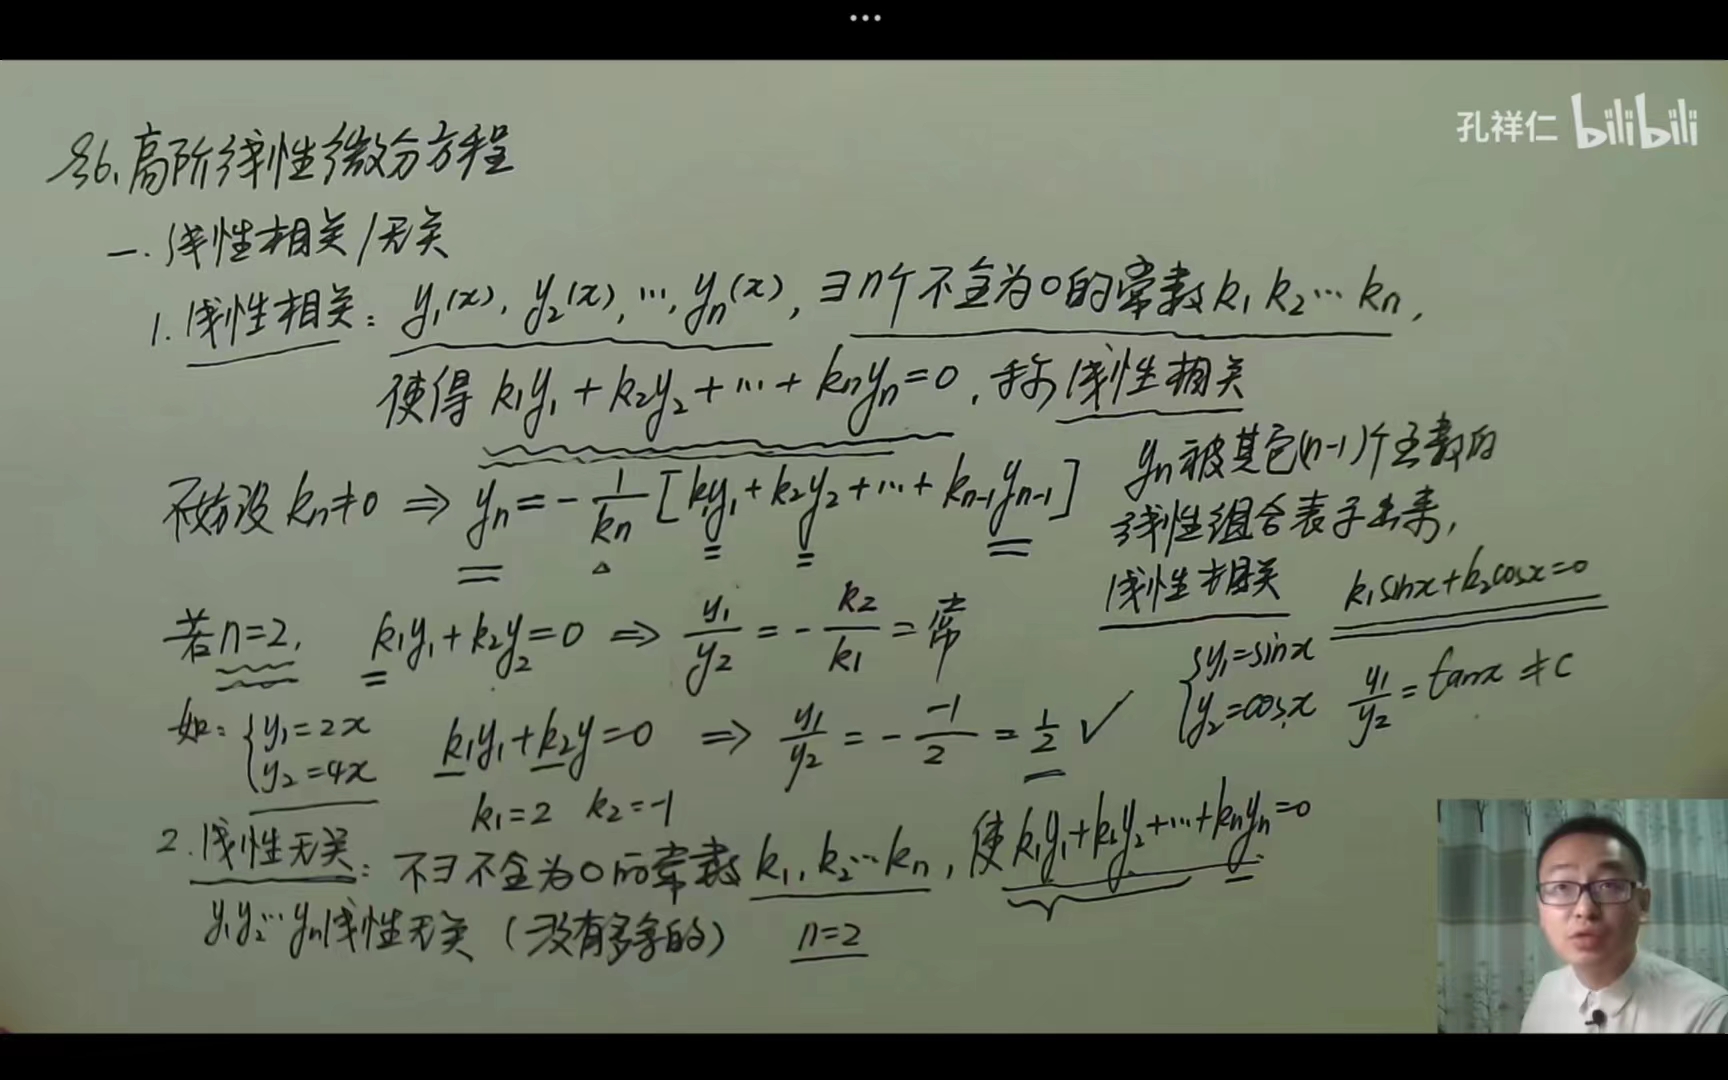 ...
孔祥仁 bilibili
§6. 高阶线性微分方程
一. 线性相关/无关
1. 线性相关: y₁(x), y₂(x), …, yₙ(x), ∃n个不全为0的常数k₁ k₂…kₙ,
使得 k₁y₁+k₂y₂+…+kₙyₙ=0, 称线性相关
不妨设 kₙ≠0 ⇒ yₙ=-1/kₙ[k₁y₁+k₂y₂+…+kₙ₋₁yₙ₋₁]
yₙ被其它(n-1)个函数的
线性组合表示出来,
线性相关
k₁sinx+k₂cosx=0
若n=2, k₁y₁+k₂y₂=0 ⇒ y₁/y₂=-k₂/k₁=常
{y₁=sinx
y₂=cosx y₁/y₂=tanx≠c
如: {y₁=2x
y₂=4x k₁y₁+k₂y=0 ⇒ y₁/y₂=--1/2=1/2 ✓
k₁=2 k₂=-1
2. 线性无关: 不∃不全为0的常数k₁, k₂…kₙ, 使k₁y₁+k₂y₂+…+kₙyₙ=0
y₁y₂…yₙ线性无关 (没有多余的) n=2